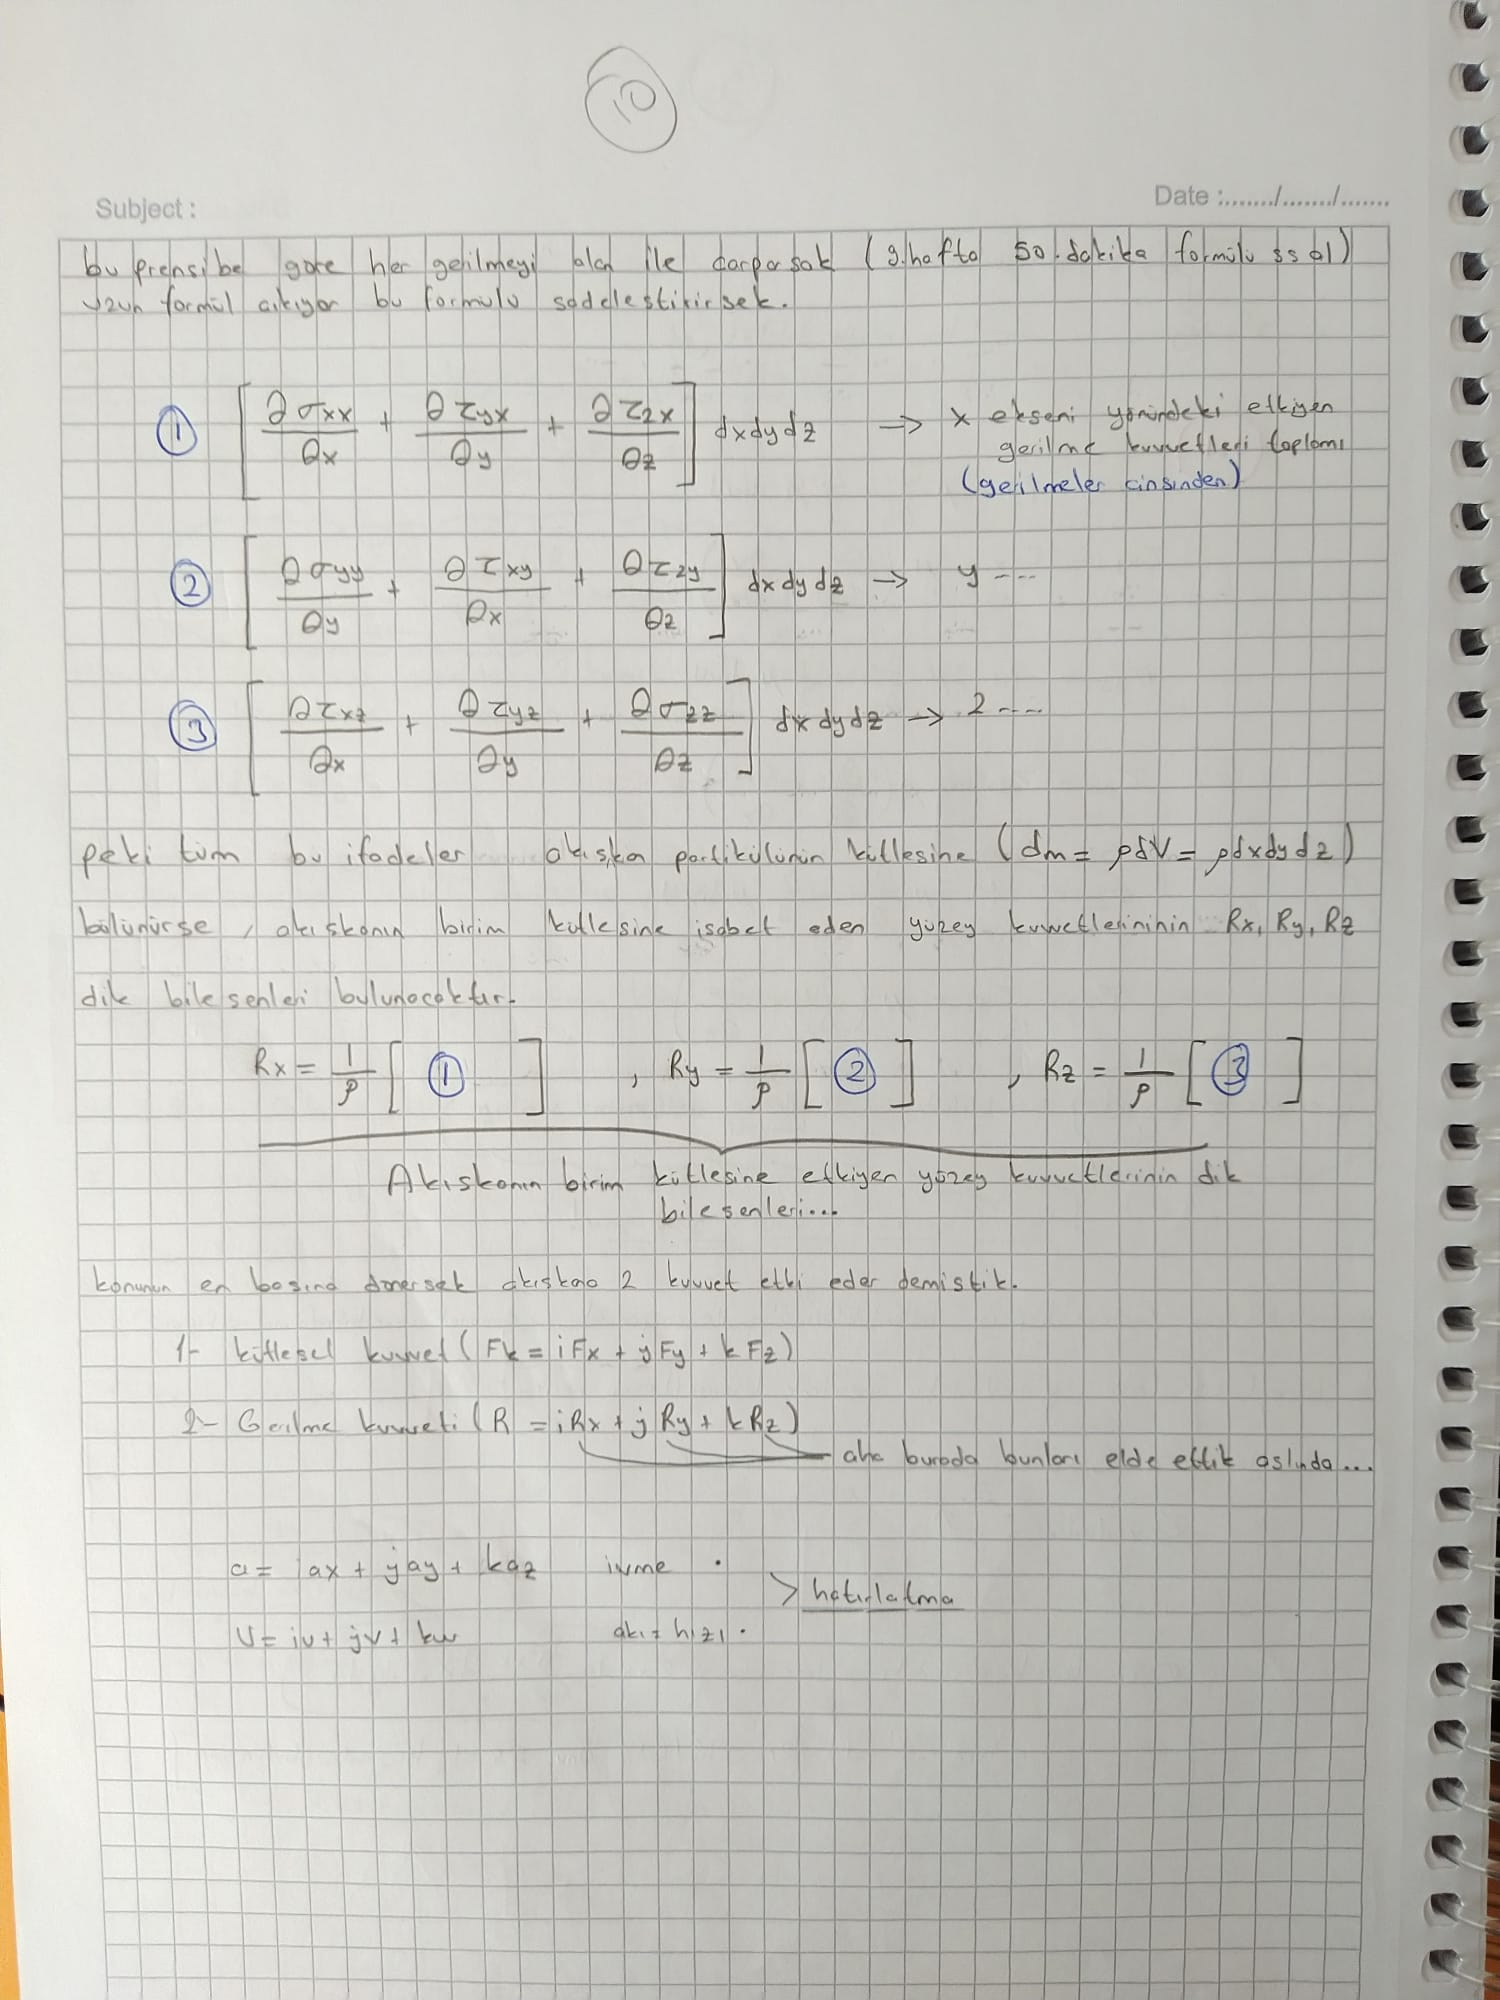 10
Subject :
Date :......./......./.......
bu prensibe göre her gerilmeyi alan ile çarparsak (9.hafta 50.dakika formülü ss al)
uzun formül çıkıyor bu formülü sadeleştirirsek.
① [ ∂σxx/∂x + ∂τyx/∂y + ∂τzx/∂z ] dxdydz → x ekseni yönündeki etkiyen
gerilme kuvvetleri toplamı
(gerilmeler cinsinden)
② [ ∂σyy/∂y + ∂τxy/∂x + ∂τzy/∂z ] dxdydz → y ---
③ [ ∂τxz/∂x + ∂τyz/∂y + ∂σzz/∂z ] dxdydz → z ---
peki tüm bu ifadeler akışkan partikülünün kütlesine (dm = ρdV = ρdxdydz)
bölünürse, akışkanın birim kütlesine isabet eden yüzey kuvvetlerininin Rx, Ry, Rz
dik bileşenleri bulunacaktır.
Rx = 1/ρ [ ① ] , Ry = 1/ρ [ ② ] , Rz = 1/ρ [ ③ ]
Akışkanın birim kütlesine etkiyen yüzey kuvvetlerinin dik
bileşenleri...
konunun en başına dönersek akışkana 2 kuvvet etki eder demiştik.
1- kütlesel kuvvet (Fk = iFx + jFy + kFz)
2- Gerilme kuvveti (R = iRx + jRy + kRz)
aha burada bunları elde ettik aslında...
a = iax + jay + kaz ivme .
> hatırlatma
U = iu + jv + kw akış hızı .